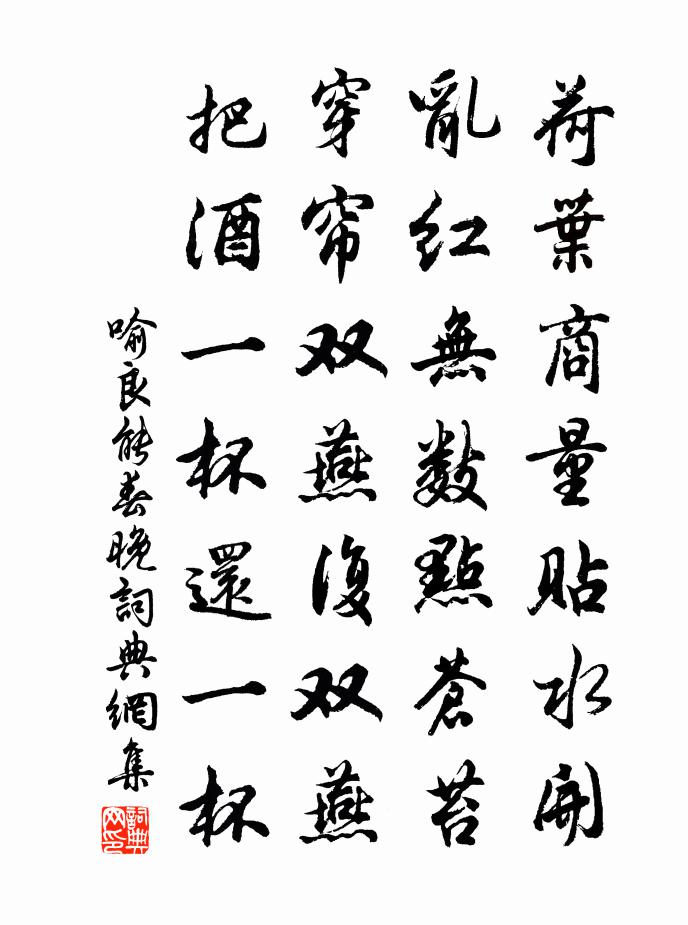 荷葉商量貼水開
亂紅無数點蒼苔
穿帘双燕復双燕
把酒一杯還一杯
喻良能春晚詞典網集
詞典网印